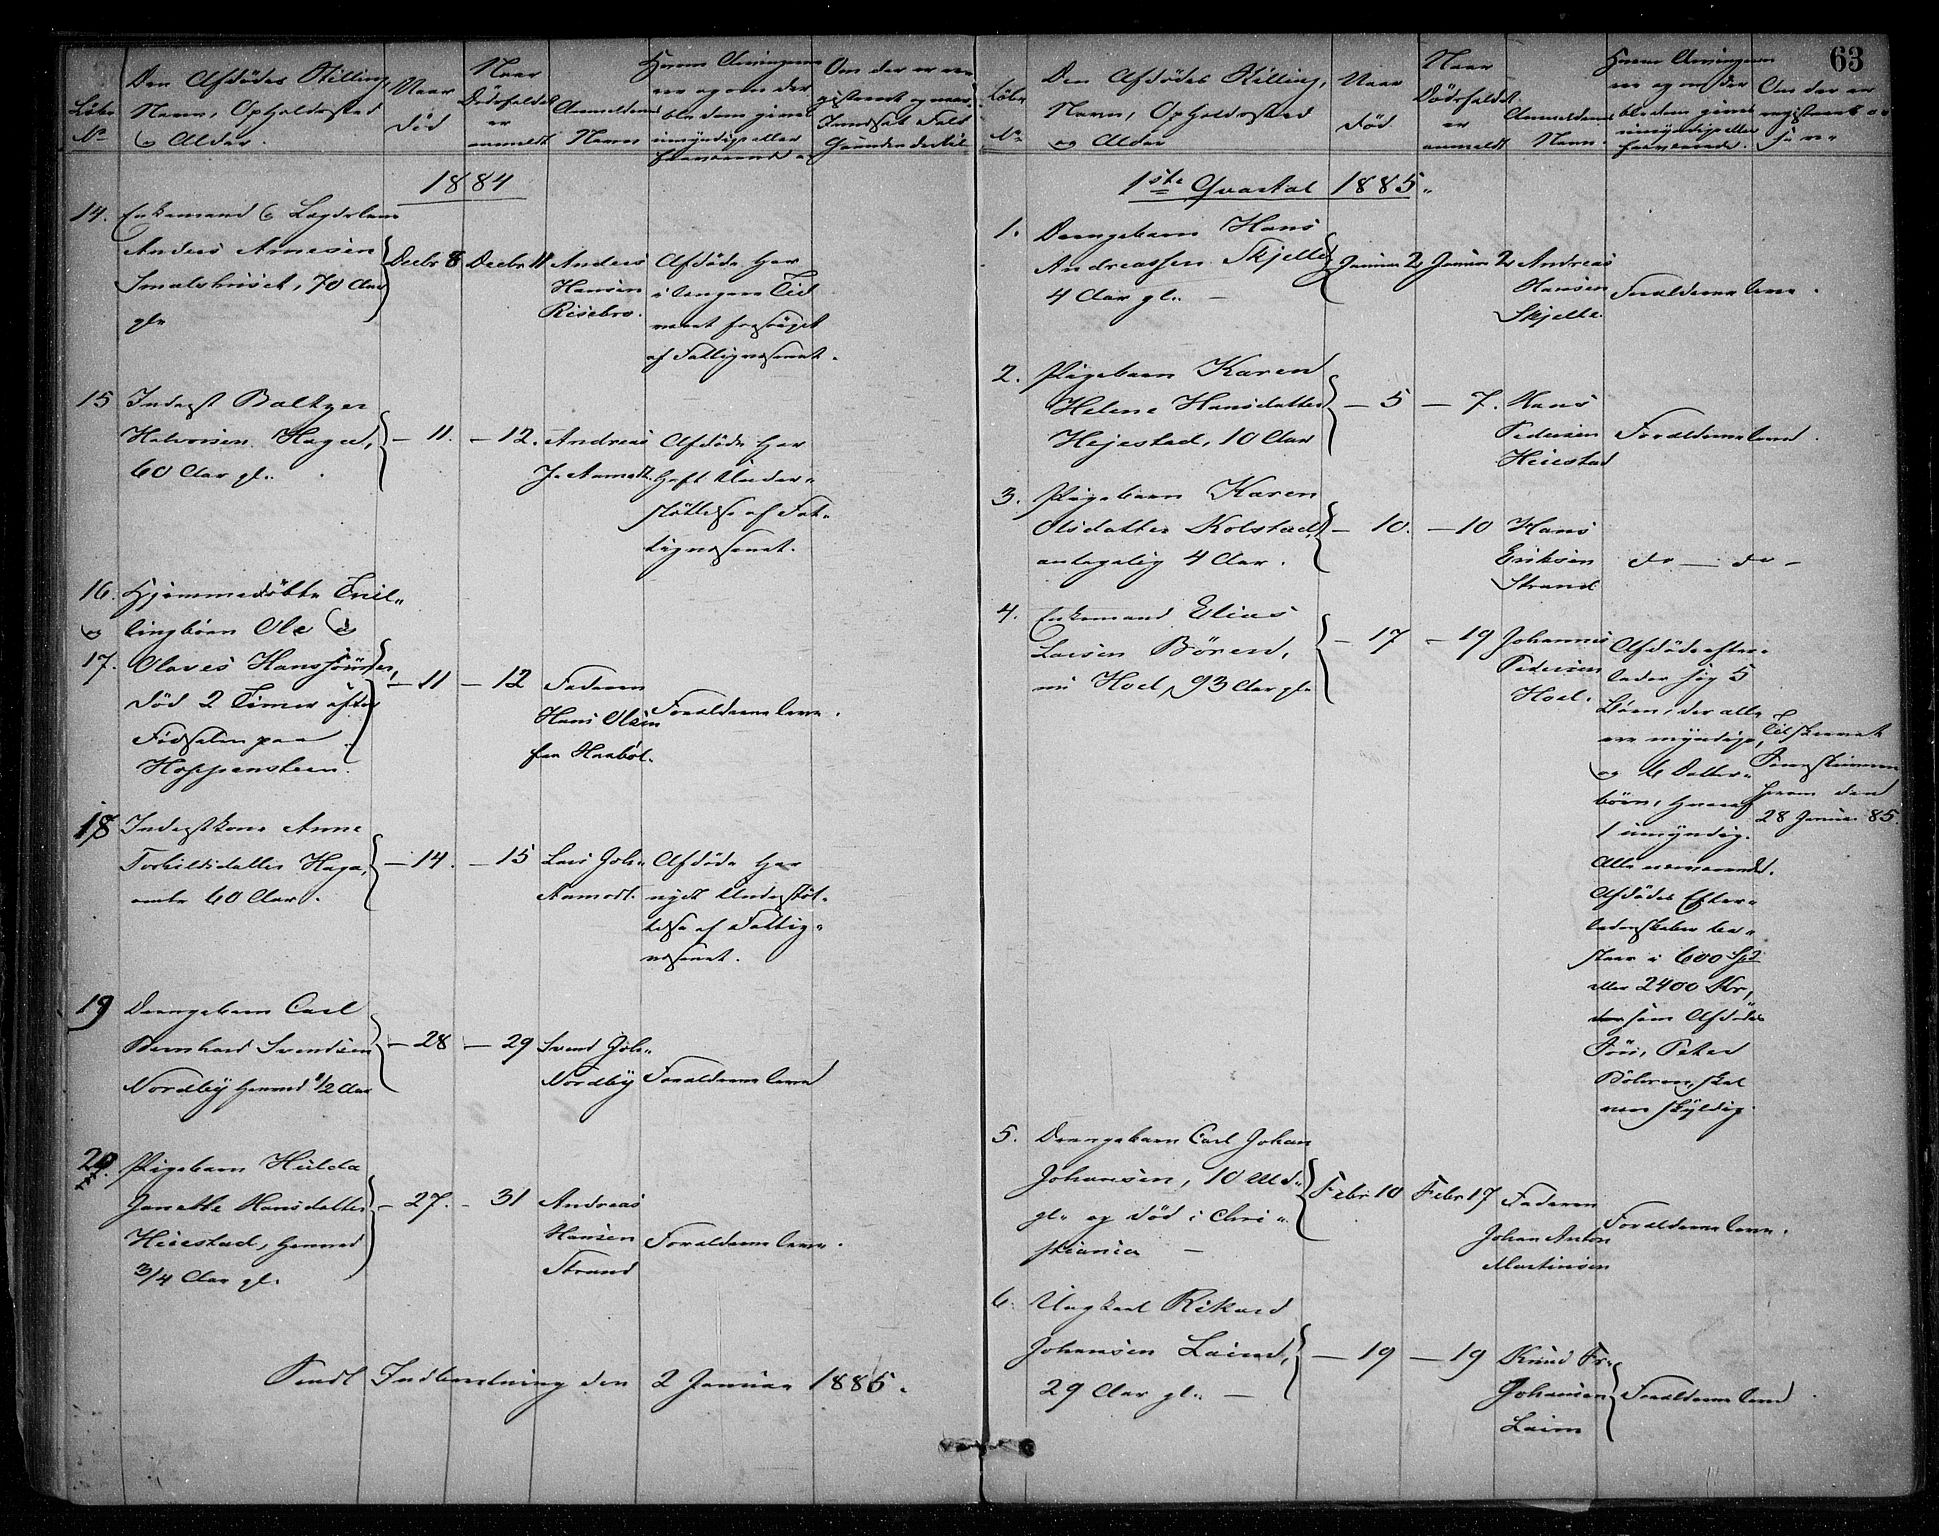 63
Løbe
No
Den Afdødes Stilling,
Navn, Opholdssted
og Alder.
Naar
død
Naar
Dødsfaldet
er
anmeldt
Anmelderens
Navn
Hvem Arvingerne
ere og om der
blandt dem gives
umyndige eller
fraværende
Om der er re
1884
14. Enkemand & Lægdslem
Anders Arnesen
Smalshuset, 70 Aar
gl.
Decbr 8
Decbr 11
Anders
Hansen
Risebro.
Afdøde har
i længere Tid
været forsørget
af Fattigvæsenet.
15 Inderst Baltzer
Halvorsen Haga,
60 Aar gl.
— 11.
— 12.
Andreas
J. Aamodt.
Afdøde har
havt Under-
støttelse af Fat-
tigvæsenet.
16. Hjemmedøbte Tvil-
og lingbørn Ole &
17. Olaves Hanssønner,
død 2 Timer efter
Fødselen paa
Hoppensteen.
— 11
— 12
Faderen
Hans Olsen
fra Haabøl.
Forældrene leve.
18 Inderstkone Anne
Torkildsdatter Haga,
omtr 60 Aar.
— 14.
— 15
Lars Joh.
Aamodt.
Afdøde har
nydt Understøt-
telse af Fattig-
væsenet.
19 Drengebarn Carl
Bernhard Svendsen
Nordby henved 1/2 Aar
— 28
— 29
Svend Joh.
Nordby
Forældrene leve
20. Pigebarn Hulda
Janette Hansdatter
Heiestad, henved
3/4 Aar gl.
— 27.
— 31
Andreas
Hansen
Strand
Forældrene leve.
Sendt Indberetning den 2 Januar 1885.
Løbe
No
Den Afdødes Stilling,
Navn, Opholdssted
og Alder
Naar
død
Naar
Dødsfaldet
er
anmeldt
Anmelderens
Navn.
Hvem Arvingerne
ere og om der
blandt dem gives
umyndige eller
fraværende.
Om der er
registreret
1ste Qvartal 1885.
1. Drengebarn Hans
Andreassen Skjelle
4 Aar gl. —
Januar 2
Januar 2
Andreas
Hansen
Skjelle.
Forældrene leve.
2. Pigebarn Karen
Helene Hansdatter
Hejestad, 10 Aar
— 5
— 7.
Hans
Pedersen
Heiestad
Forældrene leve.
3. Pigebarn Karen
Olsdatter Kolstad,
antagelig 4 Aar.
— 10.
— 10
Hans
Eriksen
Strand
do — do —
4. Enkemand Elias
Larsen Børen,
nu Hoel, 93 Aar gl.
— 17
— 19
Johannes
Pedersen
Hoel.
Afdøde efter-
lader sig 5
Børn, der alle
ere myndige,
og 6 Datter-
børn, hvoraf
1 umyndig.
Alle nærværende.
Afdødes Efter-
ladenskaber be-
staar i 600 Spd
eller 2400 Kr,
som Afdødes
Søn, Peter
Bøhren, skal
være skyldig.
Tilskrevet
herom den
28 Januar 85.
5. Drengebarn Carl Johan
Johansen, 10 Md.
gl. og død i Chri-
stiania —
Febr. 10
Febr. 17
Faderen
Johan Anton
Martinsen
Forældrene leve.
6. Ungkarl Rikard
Johansen Laim,
29 Aar gl. —
— 19
— 19
Knud Fr.
Johansen
Laim
Forældrene leve